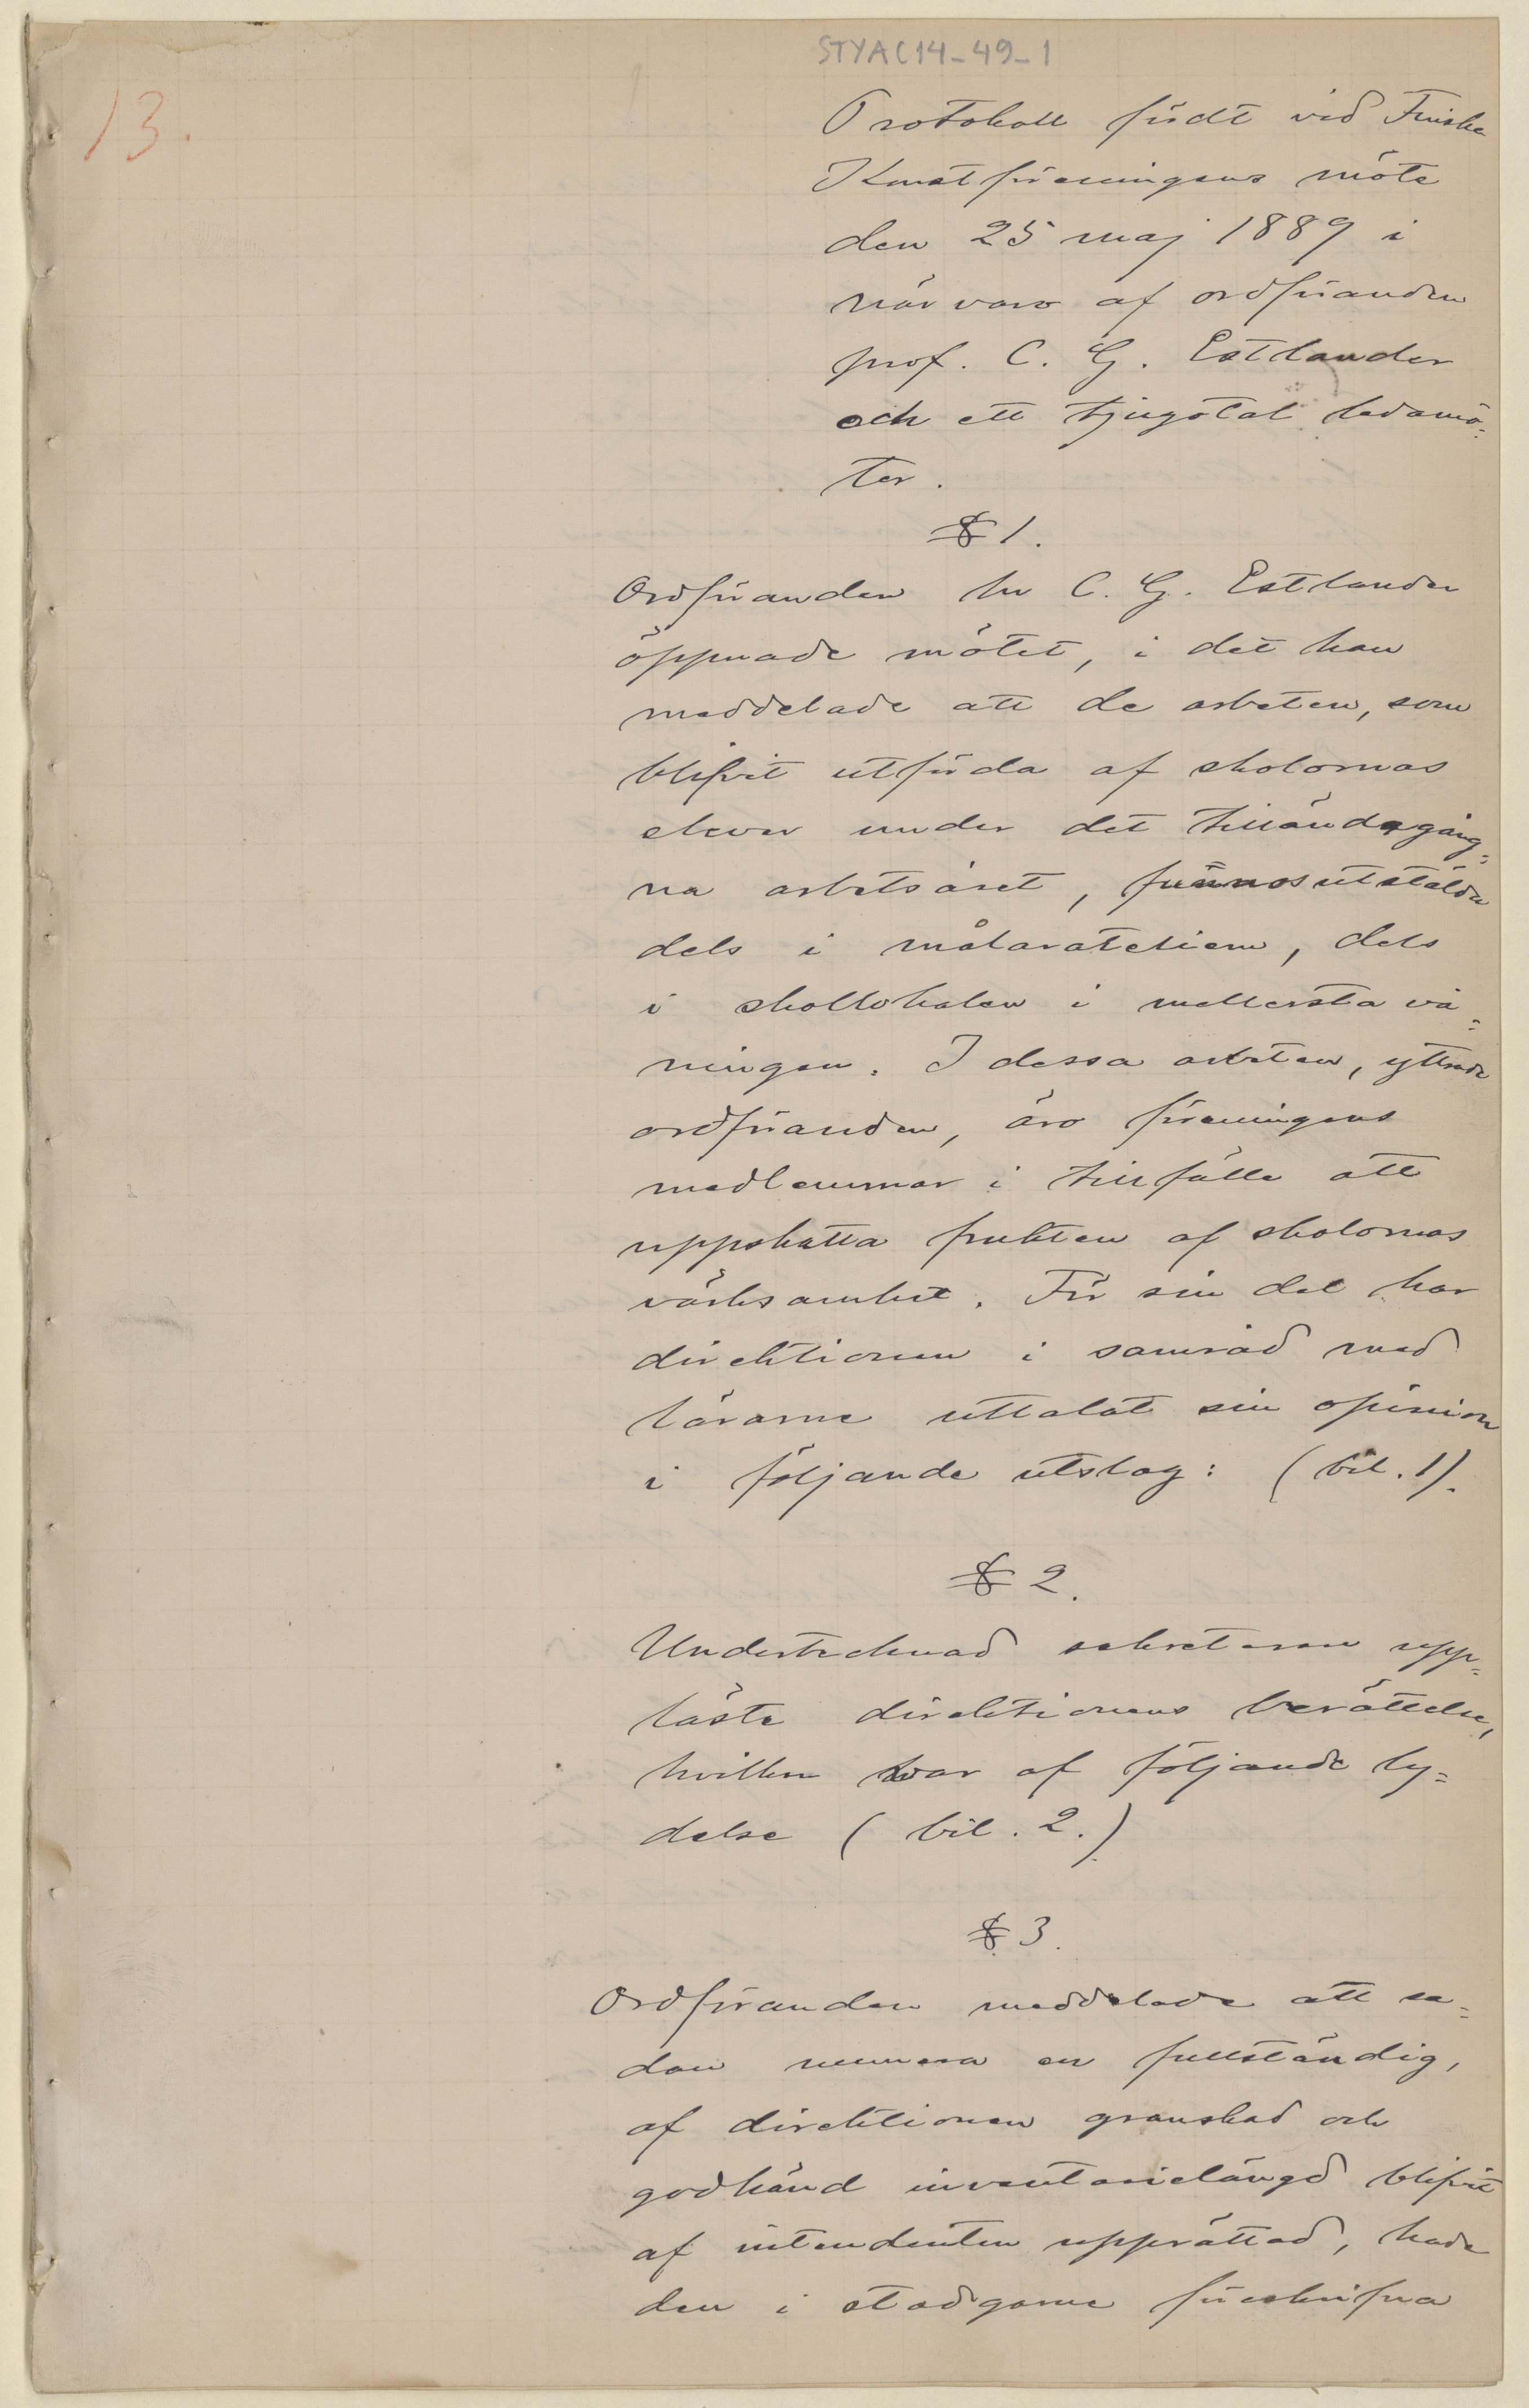 STYA C14-49-1
13.
Protokoll fördt vid Finska
Konstföreningens möte
den 25 maj 1889 i
närvaro af ordföranden
prof. C. G. Estlander
och ett tjugotal ledamö-
ter.
§ 1.
Ordföranden hr C. G. Estlander
öppnade mötet, i det han
meddelade att de arbeten, som
blifvit utförda af skolornas
elever under det tilländagång-
na arbetsåret, funnos utstälda
dels i målarateliern, dels
i skollokalen i mellersta vå-
ningen. I dessa arbeten, yttrade
ordföranden, äro föreningens
medlemmar i tillfälle att
uppskatta frukten af skolornas
värksamhet. För sin del har
direktionen i samråd med
lärarne uttalat sin opinion
i följande utslag: (bil. 1).
§ 2.
Undertecknad sekreterare upp-
läste direktionens berättelse,
hvilken var af följande ly-
delse (bil. 2.)
§ 3.
Ordföranden meddelade att se-
dan numera en fullständig,
af direktionen granskad och
godkänd inventarielängd blifvit
af intendenten upprättad, hade
den i stadgarne föreskrifna